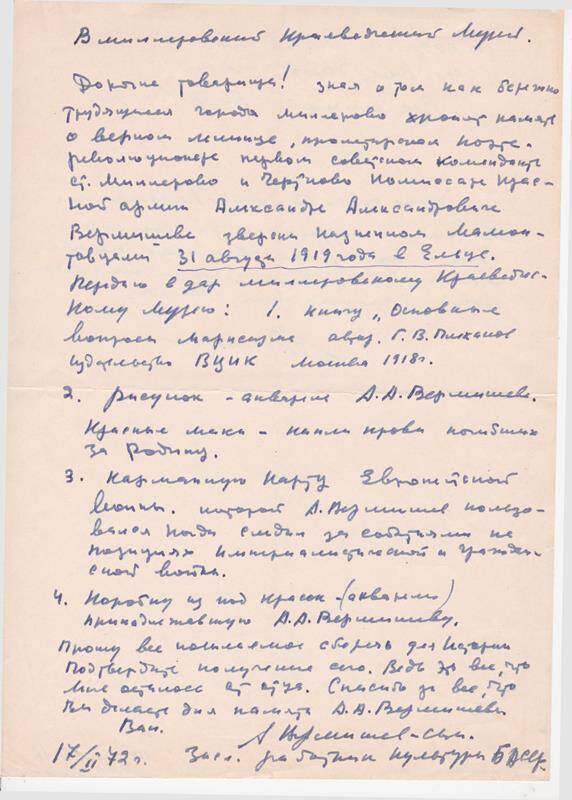 В миллеровский Краеведческий Музей.
Дорогие товарищи! зная о том как бережно
трудящиеся города миллерово хранят память
о верном ленинце, пролетарском поэте-
революционере первом советском коменданте
ст. Миллерово и Чертково Комиссаре Крас-
ной армии Александре Александровиче
Вермишеве зверски казненном мамон-
товцами 31 августа 1919 года в Ельце.
Передаю в дар миллеровскому Краеведчес-
кому Музею: 1. книгу „Основные
вопросы марксизма автор. Г. В. Плеханов
издательство ВЦИК Москва 1918г.
2. рисунок - акварель А. А. Вермишева.
Красные маки - капли крови погибших
за Родину.
3. Карманную карту Европейской
войны. которой А. Вермишев пользо-
вался когда следил за событиями на
позициях империалистической и граждан-
ской войны.
4. Коробку из под красок - (акварели)
принадлежавшую А. А. Вермишеву.
Прошу все посылаемое сберечь для Истории
Подтвердите получение сего. Ведь это все, что
мне осталось от отца. Спасибо за все, что
Вы делаете для памяти А. А. Вермишева
Ваш. А Вермишев-сын.
17/II 72 г. Засл. работник культуры